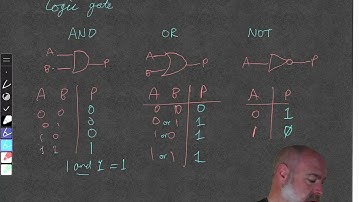 Logic gate
AND OR NOT
A B P A B P A P
A B P A B P A P
0 0 0 0 0 0 0 1
0 1 0 0 or 1 1 1 0
1 0 0 1 or 0 1
1 1 1 1 or 1 1
1 and 1 = 1